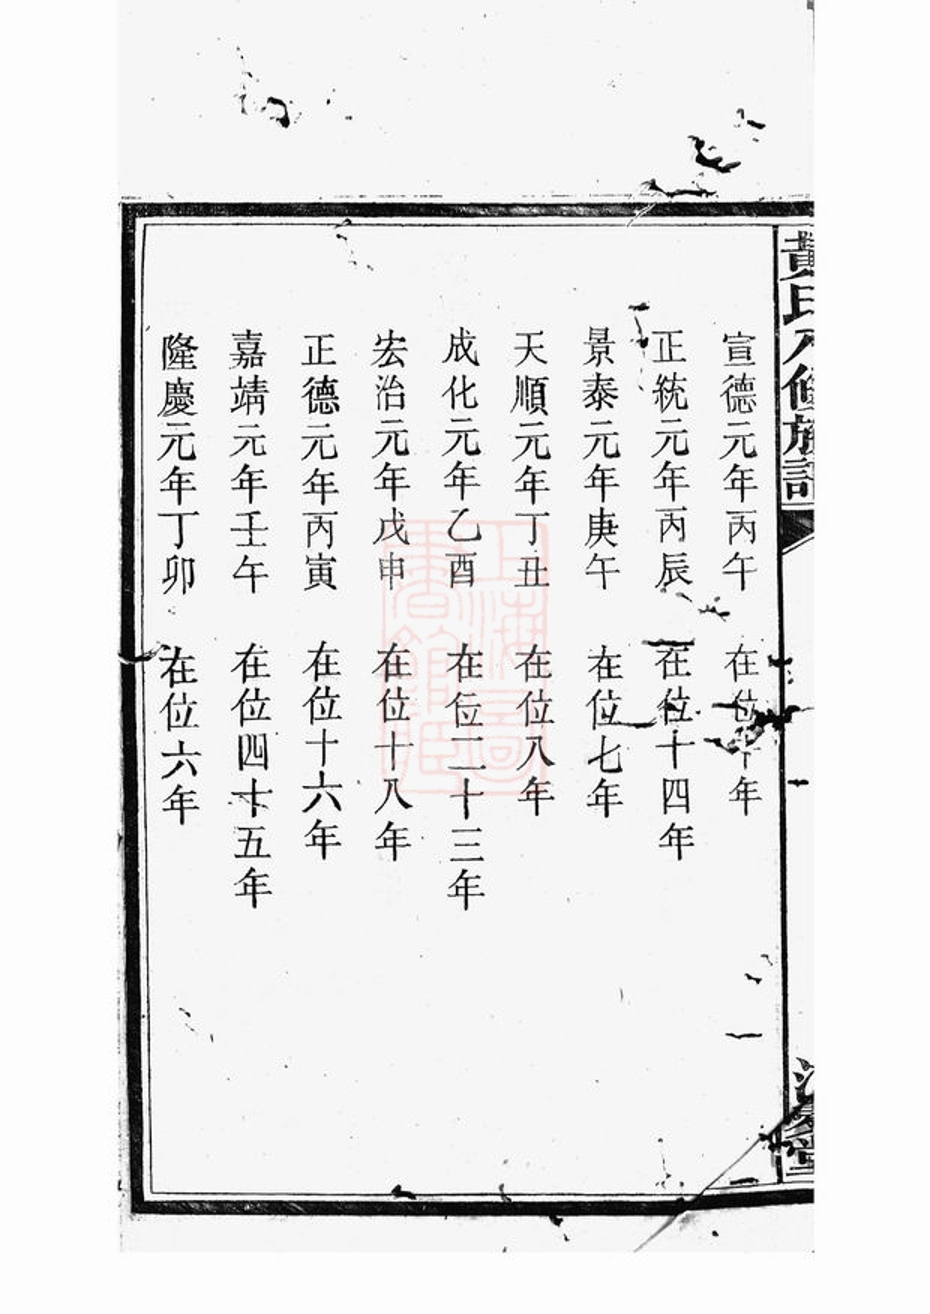 黃氏八修族譜
宣德元年丙午　在位十年
正統元年丙辰　在位十四年
景泰元年庚午　在位七年
天順元年丁丑　在位八年
成化元年乙酉　在位二十三年
宏治元年戊申　在位十八年
正德元年丙寅　在位十六年
嘉靖元年壬午　在位四十五年
隆慶元年丁卯　在位六年